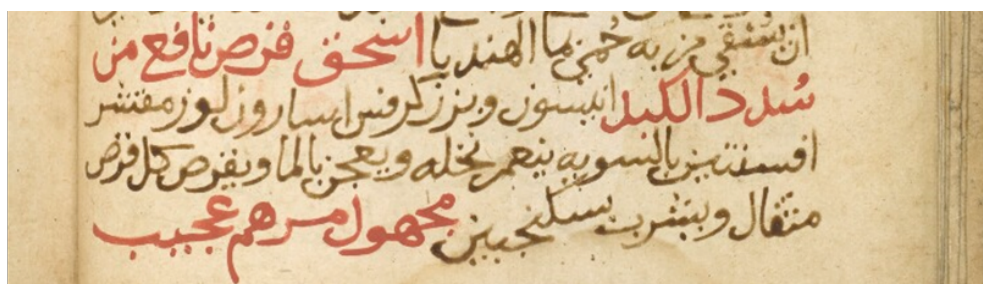 ان سقي من به حمى بما الهندبا اسحق قرص نافع من
سدد الكبد انيسون وبزر كرفس اسارون لوز مقشر
افسنتين بالسويه ينعم نخله ويعجن بالما ويقرص كل قرص
مثقال ويشرب بسكنجبين مجهول مرهم عجيب